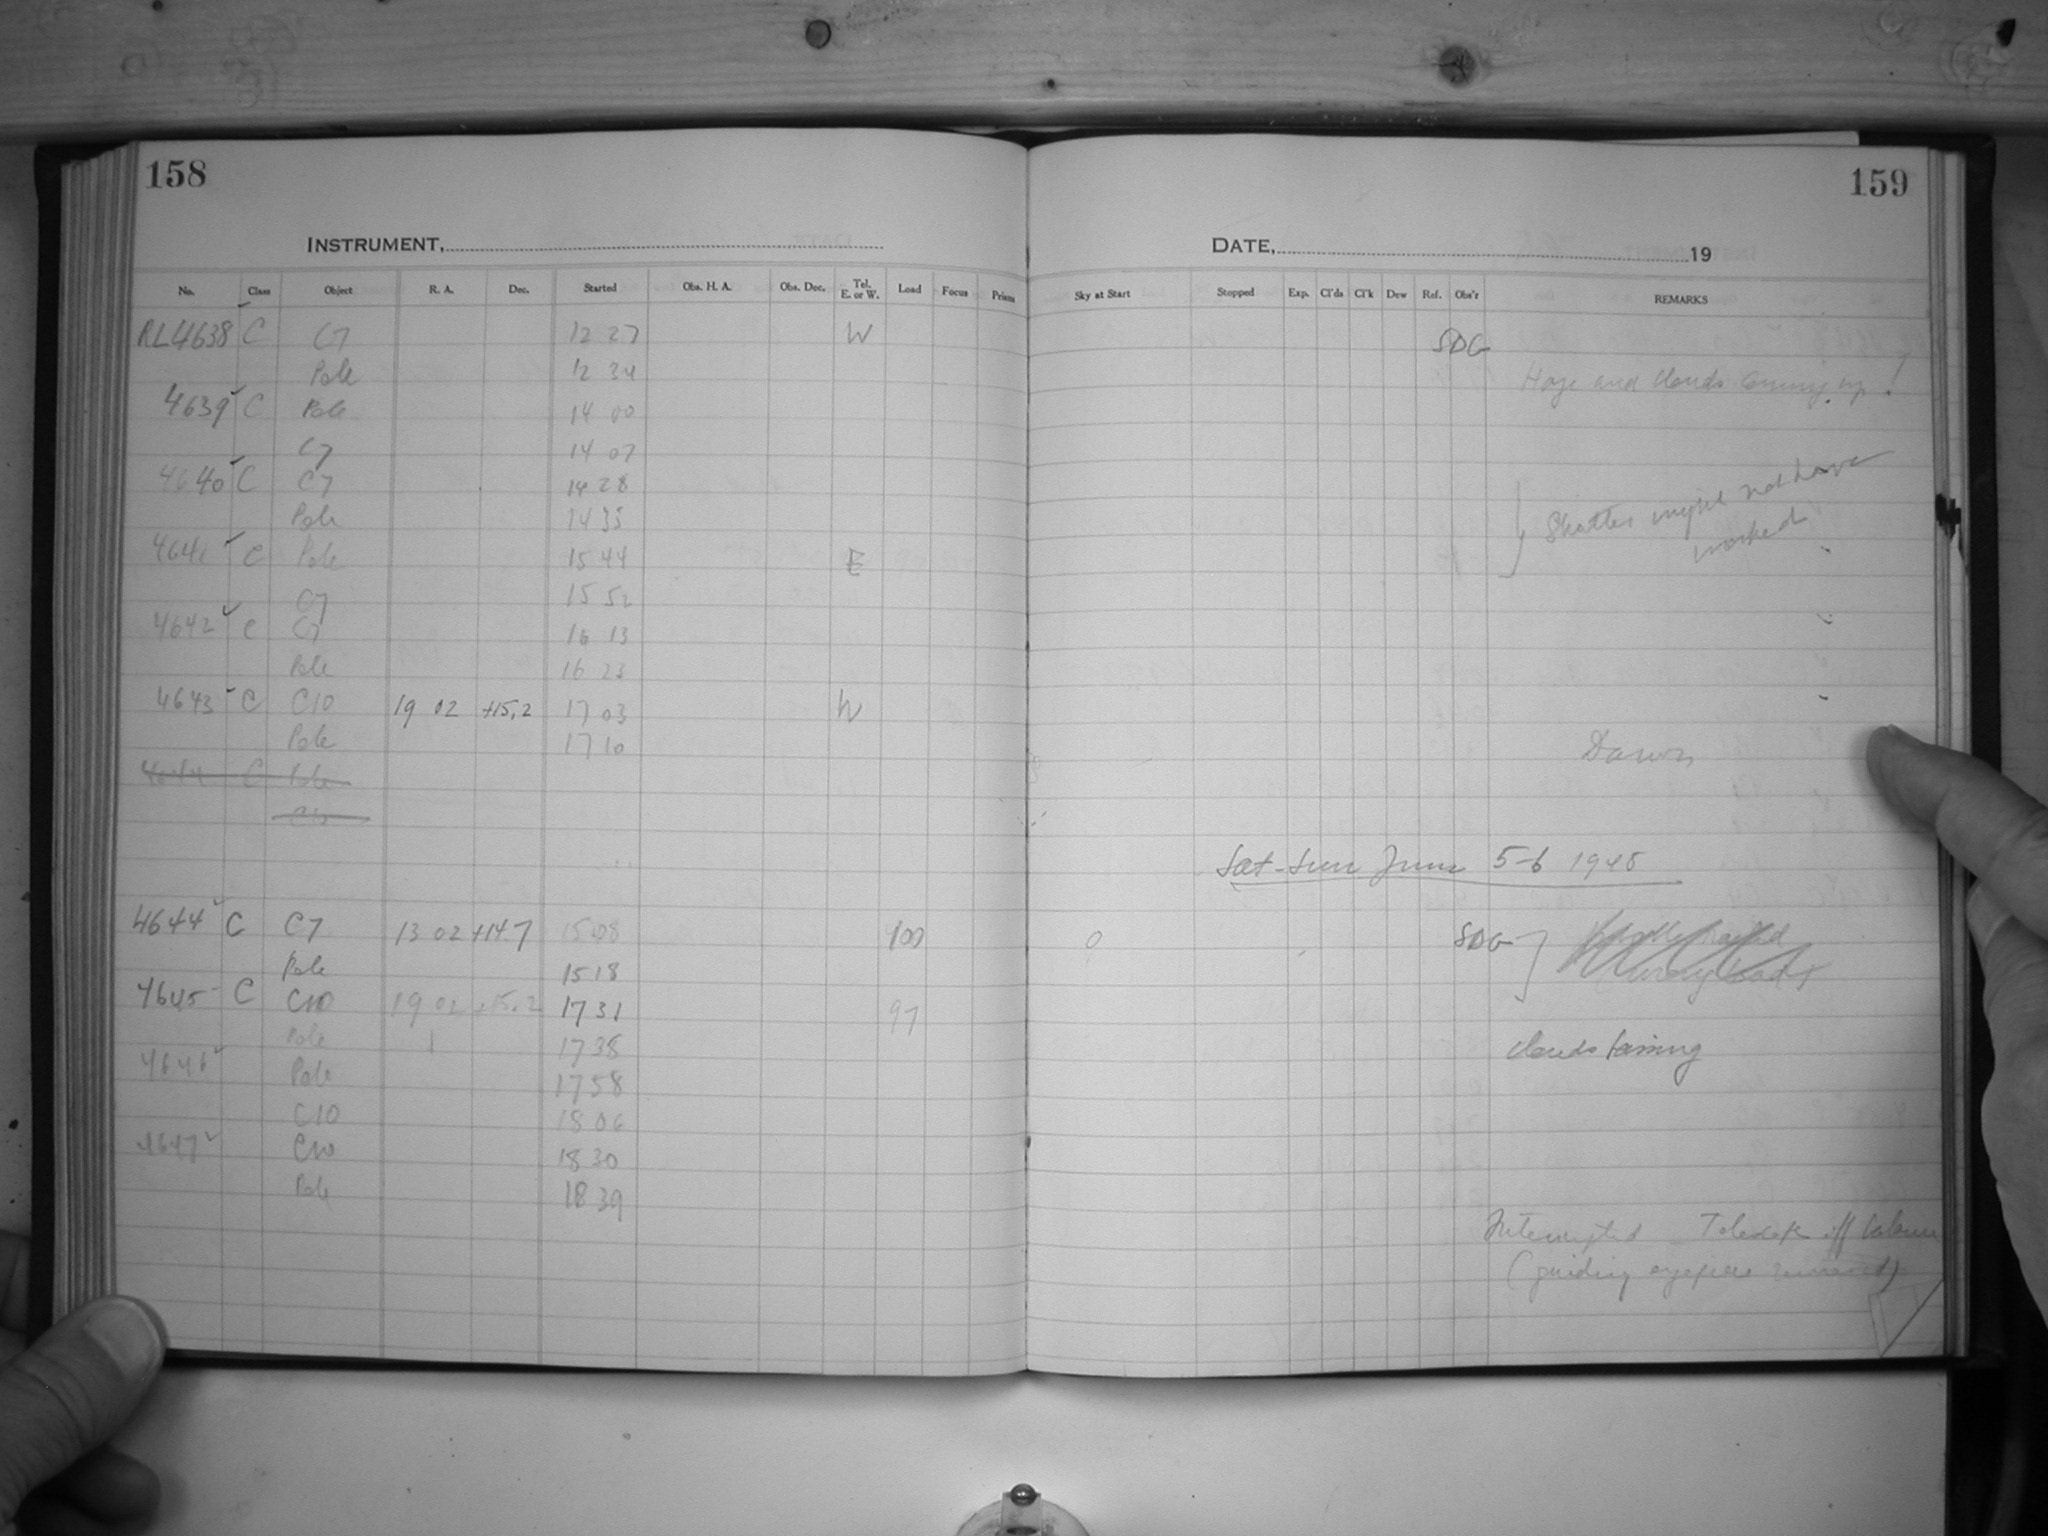 158
159
INSTRUMENT,
DATE, 19
No. Class Object R. A. Dec. Started Obs. H. A. Obs. Dec. Tel. E. or W. Load Focus Prism Sky at Start Stopped Exp. Cl'ds Cl'k Dew Ref. Obs'r REMARKS
RL4638 C C7 12 27 W SDG
Pole 12 34 Haze and clouds coming up!
4639 C Pole 14 00
C7 14 07
4640 C C7 14 28 } Shutter might not have
Pole 14 35 worked
4641 C Pole 15 44 E
C7 15 52
4642 C C7 16 13
Pole 16 23
4643 C C10 19 02 +15.2 17 03 W
Pole 17 10 Dawn
4644 C Pole
C10
Sat-Sun June 5-6 1948
4644 C C7 13 02 +14.7 15 08 100 0 SDG }
Pole 15 18
4645 C C10 19 02 +15.2 17 31 97
Pole 17 38 clouds
4646 Pole 17 58
C10 18 06
4647 C10 18 30
Pole 18 39
Interrupted - Telescope off balance
(guiding eyepiece removed)